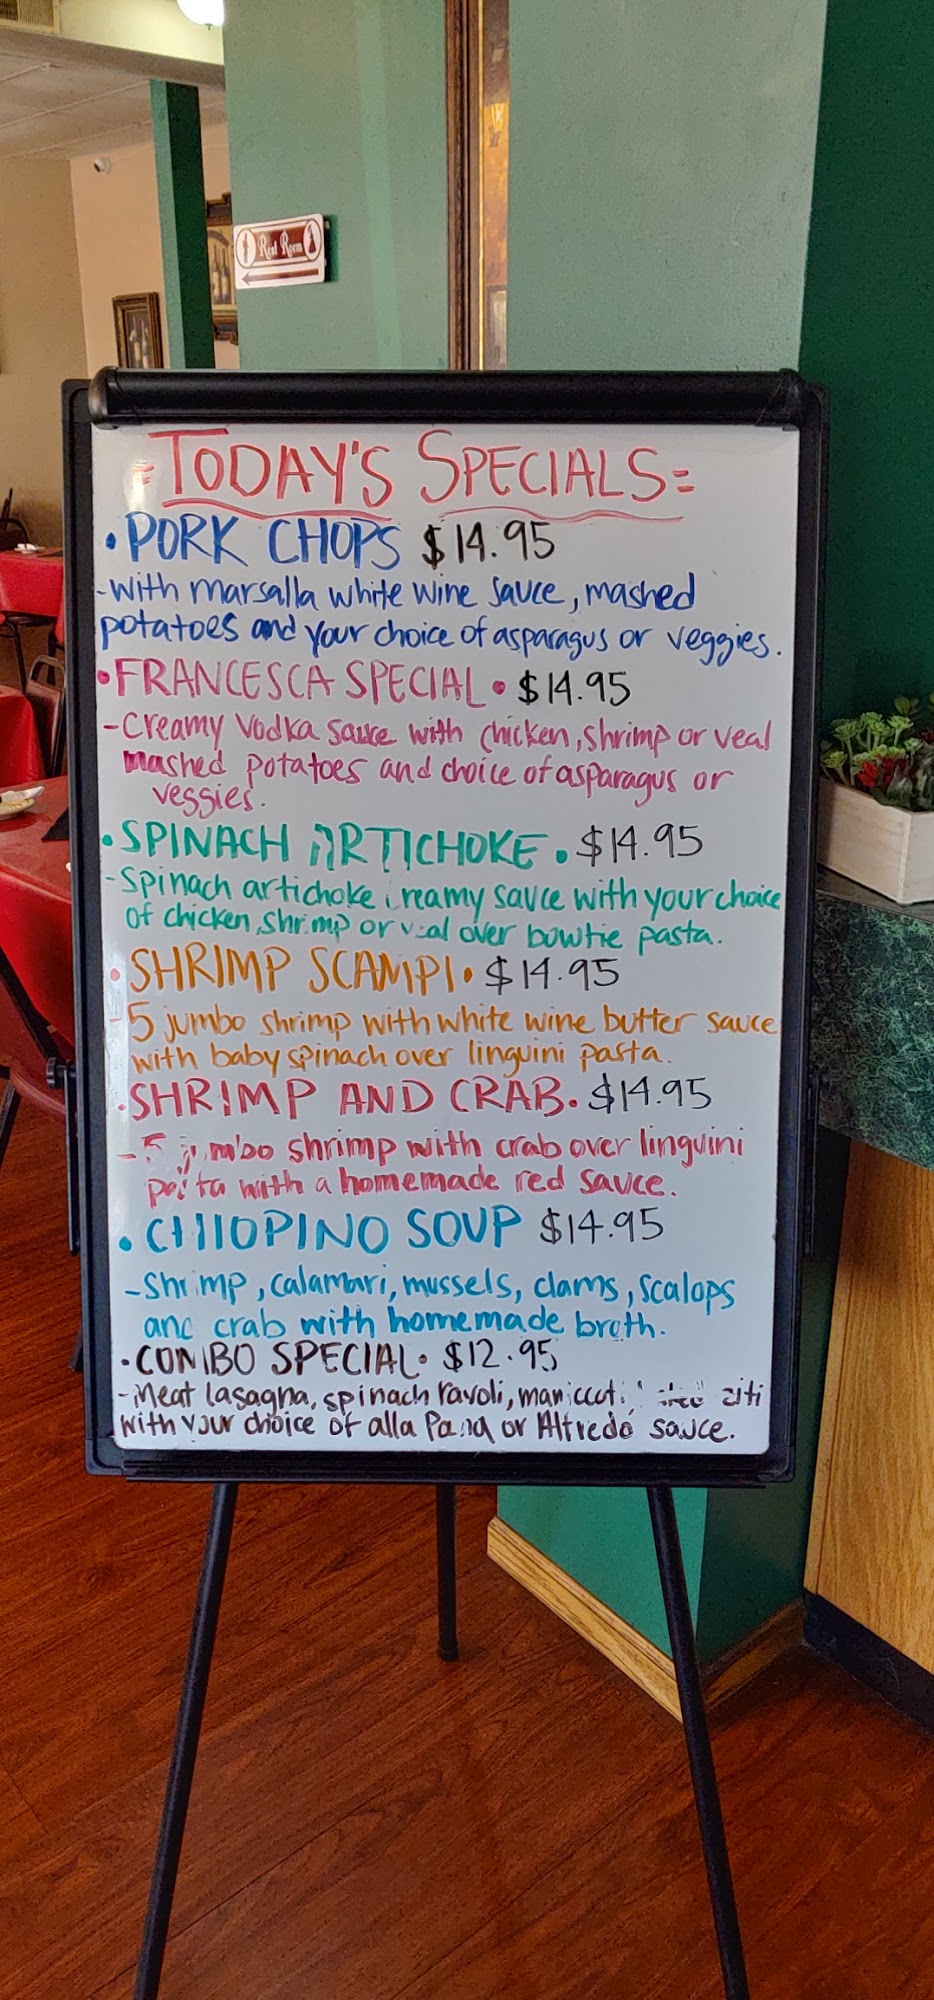 Rest Room
=TODAY'S SPECIALS=
• PORK CHOPS $14.95
-with marsalla white wine sauce, mashed
potatoes and your choice of asparagus or veggies.
•FRANCESCA SPECIAL• $14.95
-Creamy vodka sauce with chicken, shrimp or veal
mashed potatoes and choice of asparagus or
veggies.
•SPINACH ARTICHOKE. $14.95
-Spinach artichoke creamy sauce with your choice
of chicken, shrimp or veal over bowtie pasta.
• SHRIMP SCAMPI• $14.95
-5 jumbo shrimp with white wine butter sauce
with baby spinach over linguini pasta.
•SHRIMP AND CRAB. $14.95
-5 jumbo shrimp with crab over linguini
pasta with a homemade red sauce.
• CHIOPINO SOUP $14.95
-Shrimp, calamari, mussels, clams, scalops
and crab with homemade broth.
•COMBO SPECIAL• $12.95
-Meat lasagna, spinach ravoli, maniccoti, ziti
with your choice of alla Pana or Alfredo sauce.